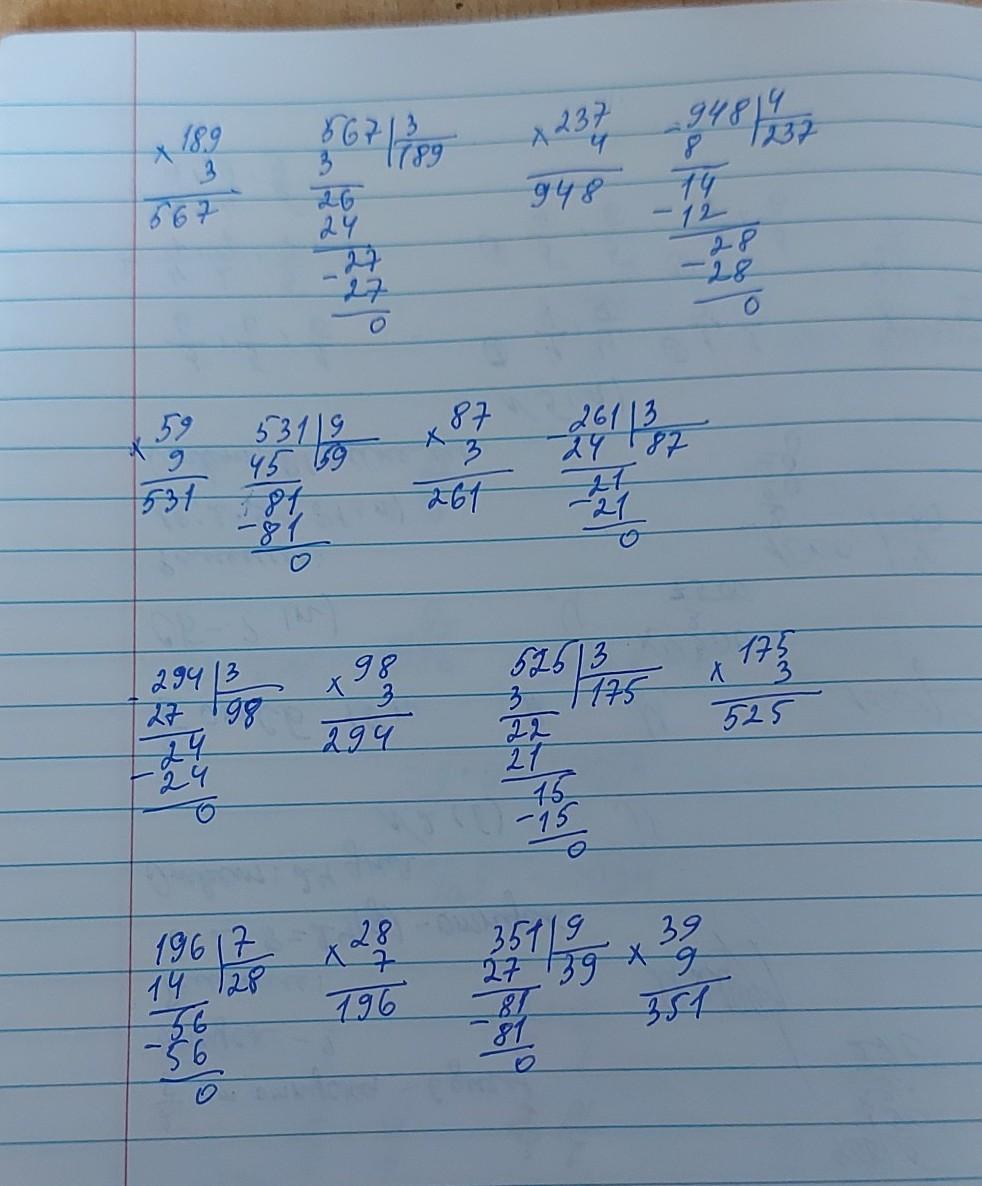 × 189 567 | 3 × 237 - 948 | 4
3 3 189 4 8 237
567 26 948 14
24 - 12
- 27 28
27 - 28
0 0
× 59 531 | 9 × 87 - 261 | 3
9 45 59 3 24 87
531 81 261 21
- 81 - 21
0 0
- 294 | 3 × 98 525 | 3 × 175
27 98 3 3 175 3
24 294 22 525
- 24 21
0 15
- 15
0
196 | 7 × 28 351 | 9 × 39
14 28 7 27 39 9
56 196 81 351
- 56 - 81
0 0